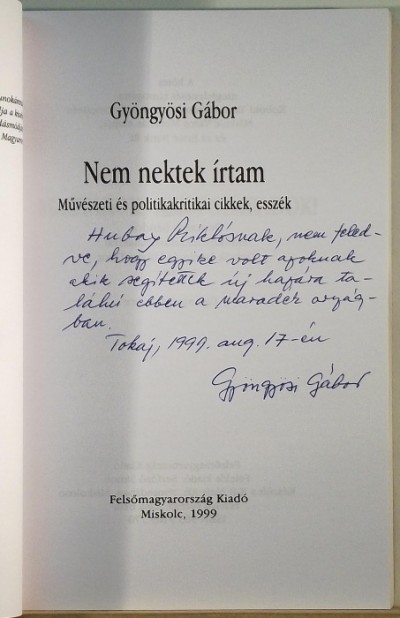 unokám
lja a k
Magyar
Gyöngyösi Gábor
Nem nektek írtam
Művészeti és politikakritikai cikkek, esszék
Hubay Miklósnak, nem feled-
ve, hogy egyike volt azoknak
akik segítettek új hazára ta-
lálni ebben a maradék ország-
ban.
Tokaj, 1999. aug. 17-én
Gyöngyösi Gábor
Felsőmagyarország Kiadó
Miskolc, 1999